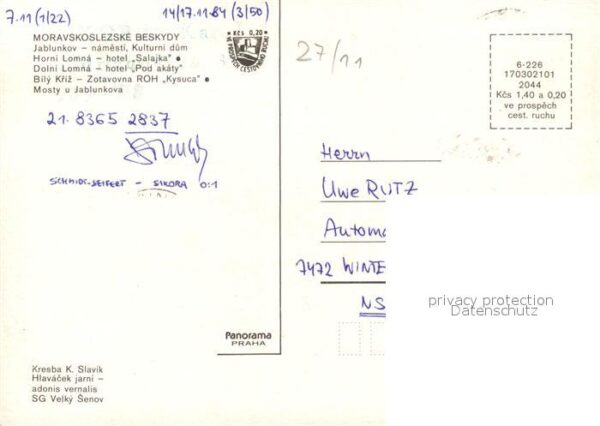 7.11 (1/22)
14/17.11.84 (3/50)
MORAVSKOSLEZSKÉ BESKYDY
Jablunkov – náměstí, Kulturní dům
Horní Lomná – hotel „Salajka" ●
Dolní Lomná – hotel „Pod akáty"
Bílý Kříž – Zotavovna ROH „Kysuca" ●
Mosty u Jablunkova
Kčs 0,20
27/11
6-226
170302101
2044
Kčs 1,40 a 0,20
ve prospěch
cest. ruchu
21. 8365 2837
SCHMIDT-SEIFERT – SIKORA 0:1
Herrn
Uwe RUTZ
Automa
7472 WINTE
NS
privacy protection
Datenschutz
Panorama
PRAHA
Kresba K. Slavík
Hlaváček jarní –
adonis vernalis
SG Velký Šenov